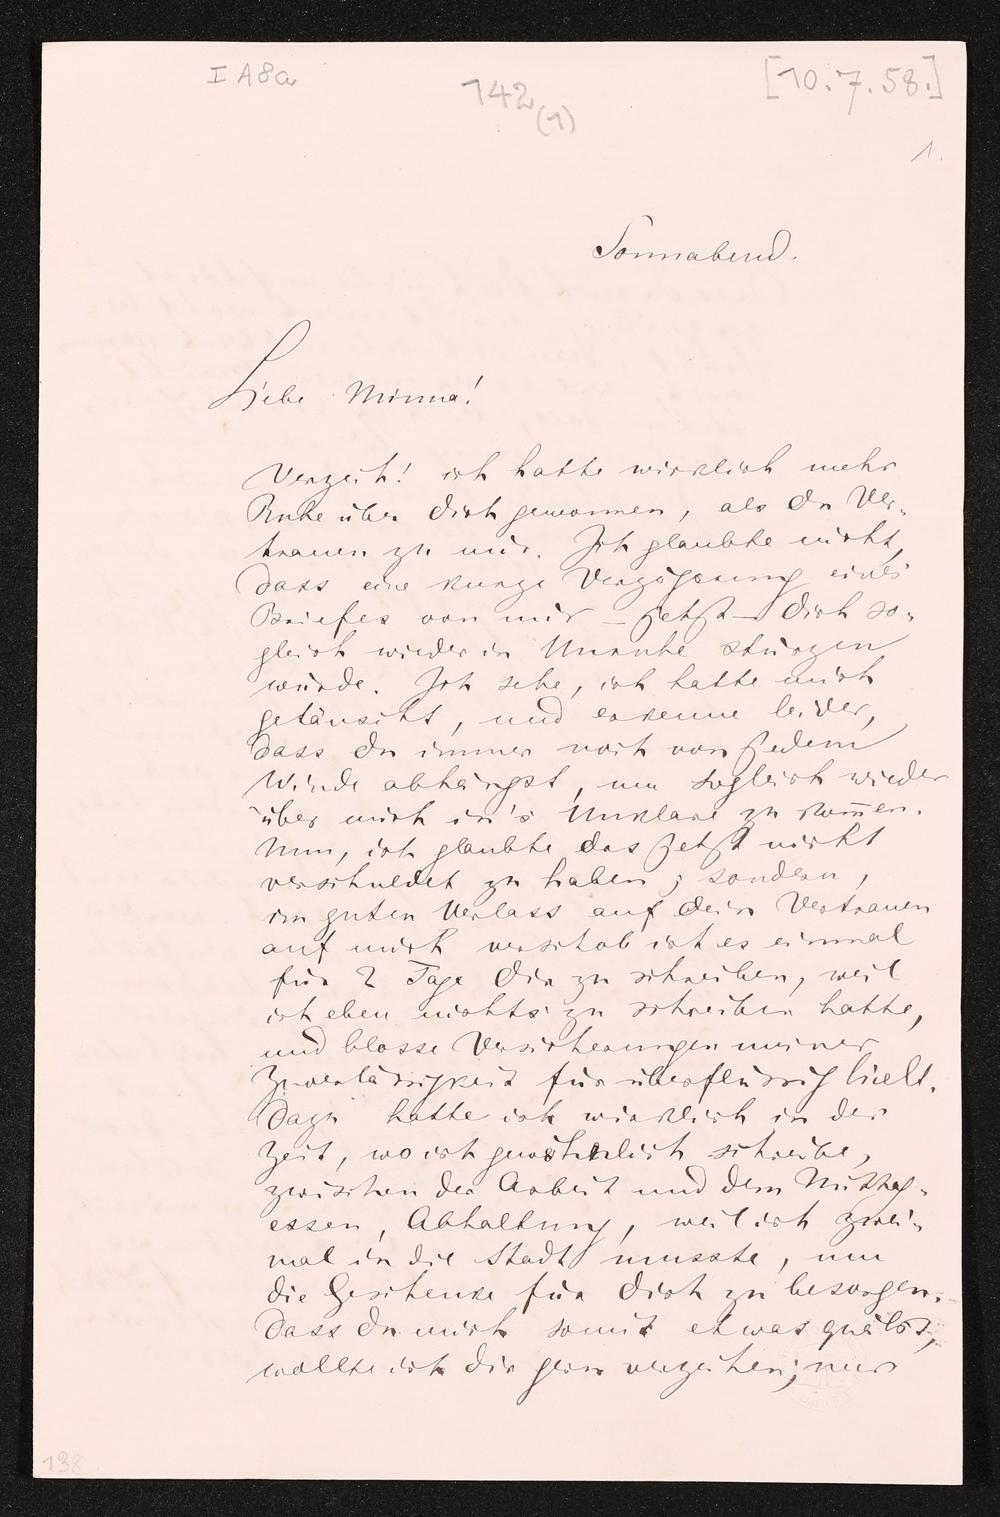 I A 8a
142
(1)
[10.7.58.]
1.
Sonnabend.
Liebe Minna!
Verzeih! ich hatte wirklich mehr
Ruhe über dich gewonnen, als du Ver-
trauen zu mir. Ich glaubte nicht,
dass eine kurze Verzögerung eines
Briefes von mir – jetzt – dich so-
gleich wieder in Unruhe stürzen
würde. Ich sehe, ich hatte mich
getäuscht, und erkenne leider,
dass du immer noch von jedem
Winde abhängst, um sogleich wieder
über mich in's Unklare zu kom̄en.
Nun, ich glaubte das jetzt nicht
verschuldet zu haben; sondern,
im guten Verlass auf dein Vertrauen
auf mich verschob ich es einmal
für 2 Tage dir zu schreiben, weil
ich eben nichts zu schreiben hatte,
und blosse Versicherungen meiner
Zuverlässigkeit für überflüssig hielt.
Dazu hatte ich wirklich in der
Zeit, wo ich gewöhnlich schreibe,
zwischen der Arbeit und dem Mittag-
essen, Abhaltung, weil ich zwei-
mal in die Stadt musste, um
die Geschenke für dich zu besorgen.
Dass du mich somit etwas quälst,
wollte ich dir gern verzeihen; nur
138